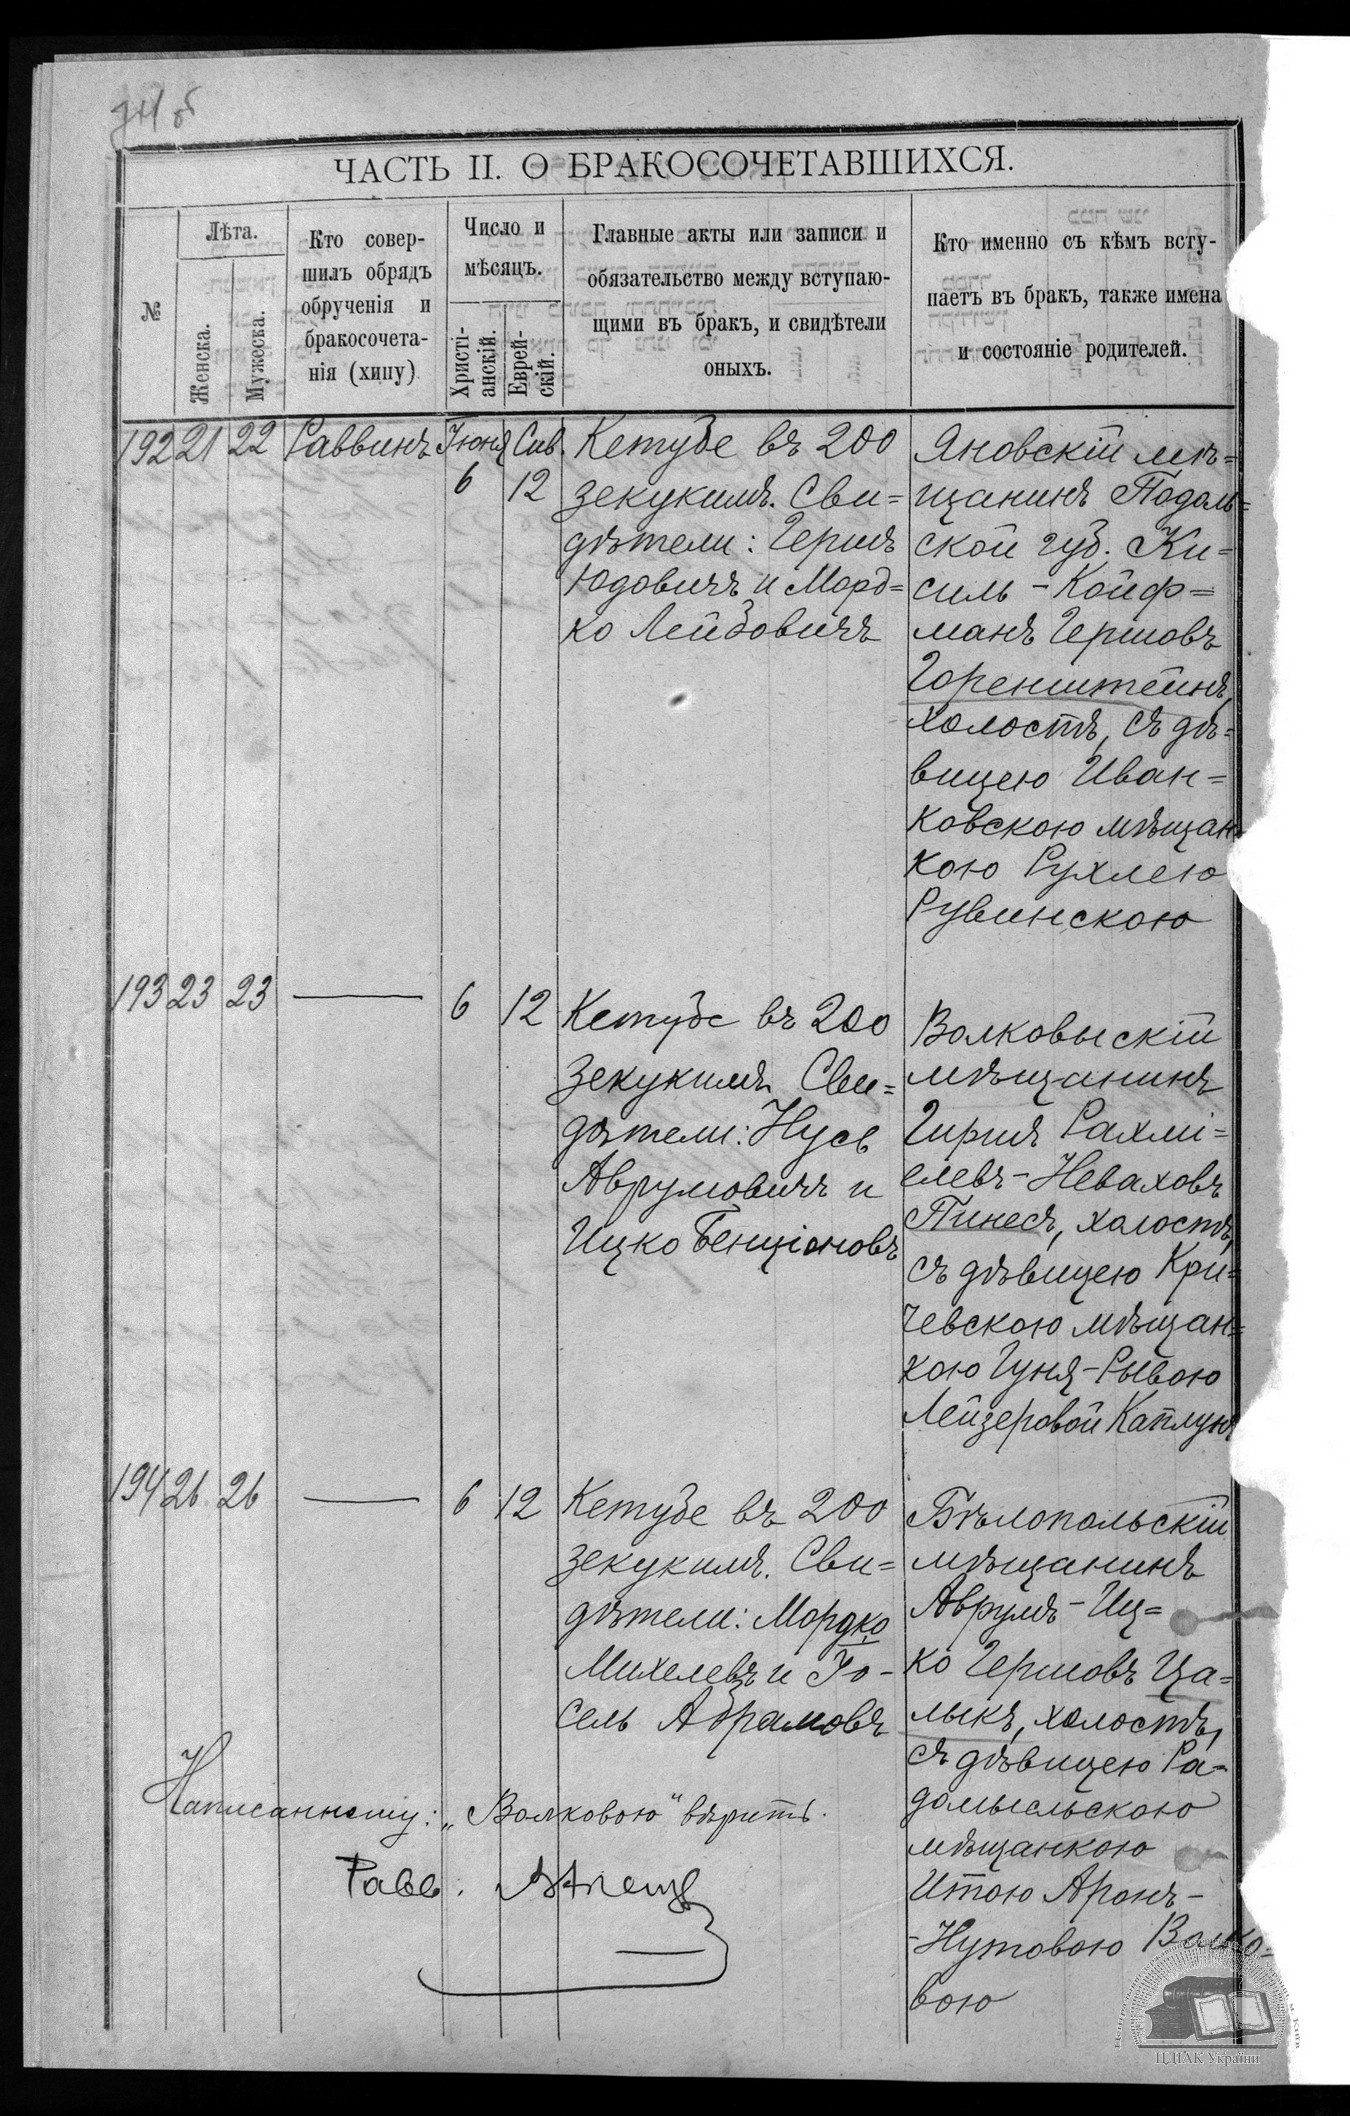 ЧАСТЬ II. О БРАКОСОЧЕТАВШИХСЯ.
№
Лѣта.
Женска.
Мужеска.
Кто совер-
шилъ обрядъ
обрученія и
бракосочета-
нія (хипу)
Число и
мѣсяцъ.
Христі-
анскій.
Еврей-
скій.
Главные акты или записи и
обязательство между вступаю-
щими въ бракъ, и свидѣтели
оныхъ.
Кто именно съ кѣмъ всту-
паетъ въ бракъ, также имена
и состояніе родителей.
192 21 22 Раввинъ Іюня 6 Сив. 12
Кетубе въ 200
зекукимъ. Сви=
дѣтели: Гершъ
Юдовичъ и Морд=
ко Лейбовичъ
Яновскій мѣ=
щанинъ Подоль=
ской губ. Ки=
силь-Койф=
манъ Гершовъ
Горенштейнъ,
холостъ, съ дѣ=
вицею Иван=
ковскою мѣщан
кою Рухлею
Рувинскою
193 23 23 — 6 12
Кетубе въ 200
зекукимъ Сви=
дѣтели: Нусь
Аврумовичъ и
Ицко Бенціоновъ
Волковыскій
мѣщанинъ
Гиршъ Рахмі=
елевъ-Неваховъ
Пинесъ, холостъ,
съ дѣвицею Кри=
чевскою мѣщан=
кою Гуня-Рывою
Лейзеровой Каплун
194 26 26 — 6 12
Кетубе въ 200
зекукимъ. Сви=
дѣтели: Мордко
Михелевъ и Іо-
сель Абрамовъ
Бѣлопольскій
мѣщанинъ
Аврумъ-Иц=
ко Гершовъ Ца=
лыкъ, холостъ,
съ дѣвицею Ра-
домысльскою
мѣщанкою
Итою Аронъ-
-Нутовою Волко=
вою
Написанному: „Волковою" вѣрить.
Равв.
ЦДІАК України